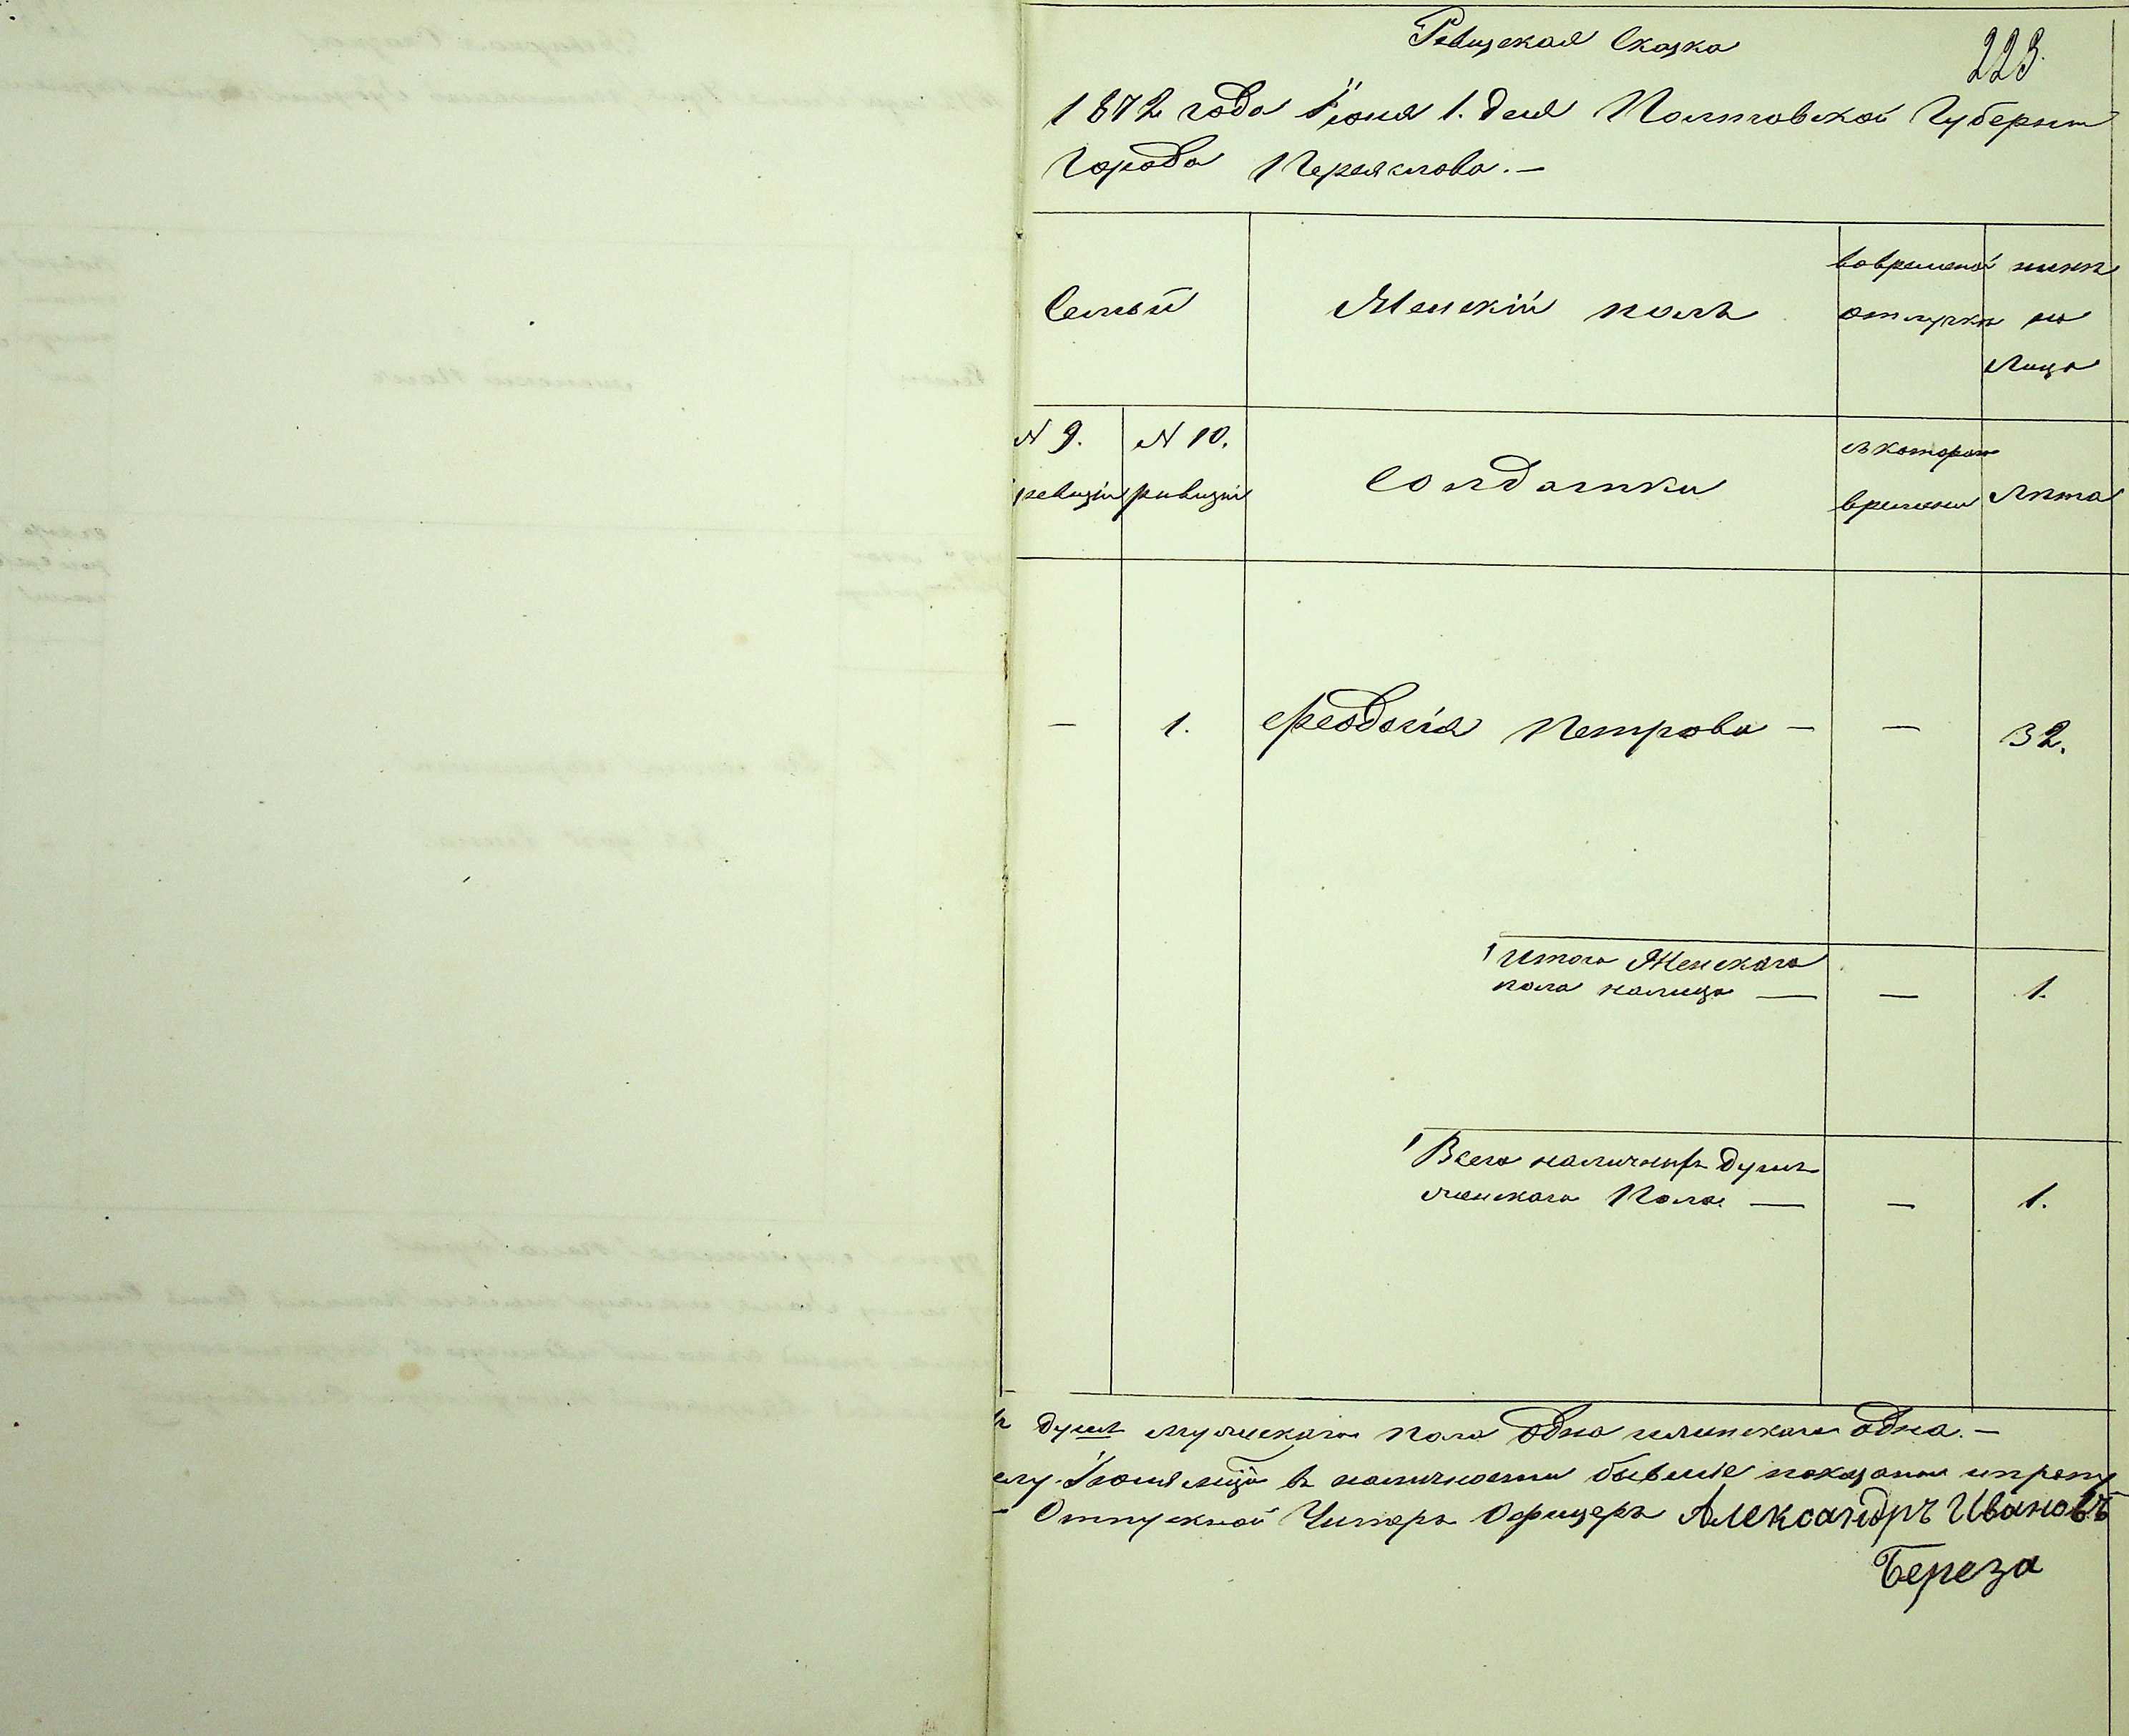 Ревизская Сказка
223.
1872 года Іюня 1. дня Полтовской Губерни
Города Переяслова. —
Семьи
Женскій полъ
вовременой отлучкѣ
нынѣ на Лицо
N 9. ревизіи
N 10. ривизіи
Солдатки
съ котораго времени
Лѣта
— 1. Феодосія Петрова — — 32.
Итого Женскаго
пола налицо — — 1.
Всего наличныхъ душъ
женскаго Пола — — 1.
душъ мужескаго пола одна иженскаго одна. —
въ наличности бывшіе показаны
Отпускной Унтеръ Офицеръ Александръ Ивановъ
Береза